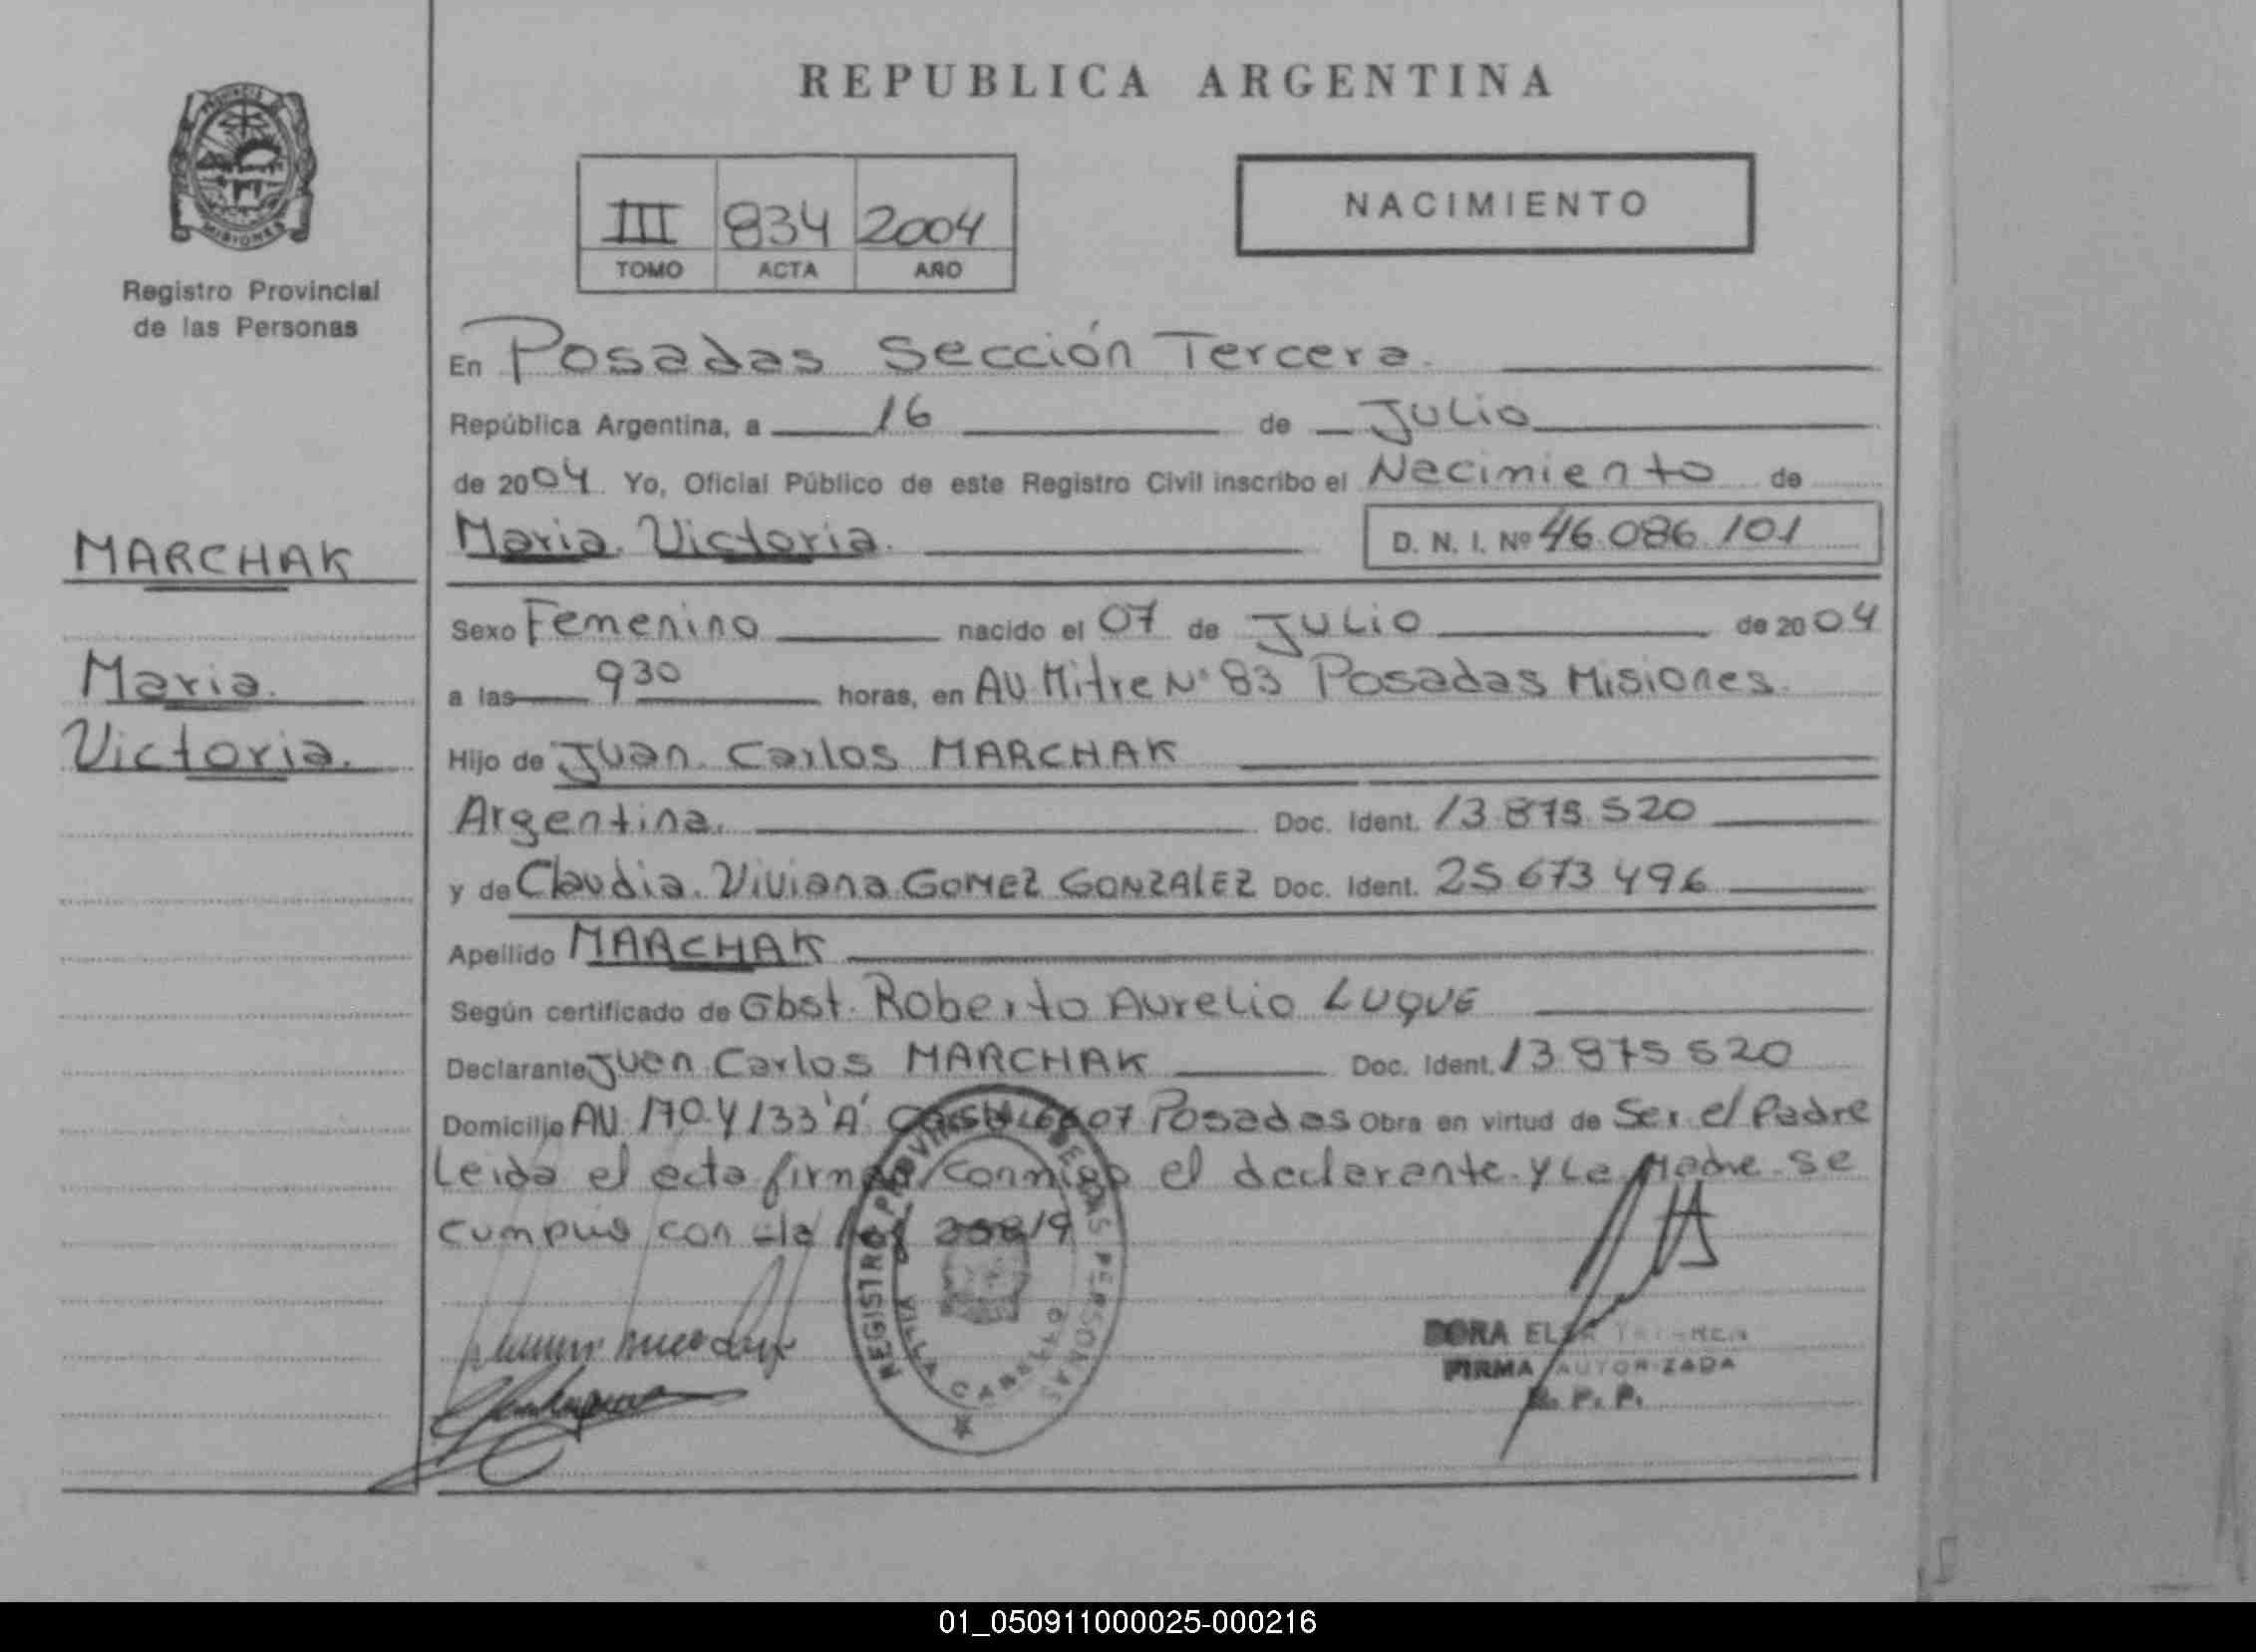 REPUBLICA ARGENTINA
PROVINCIA DE
MISIONES
Registro Provincial
de las Personas
III 834 2004
TOMO ACTA AÑO
NACIMIENTO
En Posadas Sección Tercera
República Argentina, a 16 de Julio
de 2004 Yo, Oficial Público de este Registro Civil inscribo el Nacimiento de
Maria Victoria D. N. I. Nº 46.086.101
MARCHAK
Maria
Victoria.
Sexo Femenino nacido el 07 de Julio de 2004
a las 930 horas, en AU Mitre Nº 83 Posadas Misiones
Hijo de Juan Carlos MARCHAK
Argentina. Doc. Ident. 13.875.520
y de Claudia Viviana GOMEZ GONZALEZ Doc. Ident. 25 673 496
Apellido MARCHAK
Según certificado de Obst. Roberto Aurelio LUQUE
Declarante Juan Carlos MARCHAK Doc. Ident. 13.875 520
Domicilio AU 170 y 133 "A" Posadas Obra en virtud de Ser el Padre
Leida el acta firman conmigo el declarante y la Madre se
con la
REGISTRO PROVINCIAL DE LAS PERSONAS
VILLA CABELLO
DORA ELSA
FIRMA AUTORIZADA
R. P. P.
01_050911000025-000216